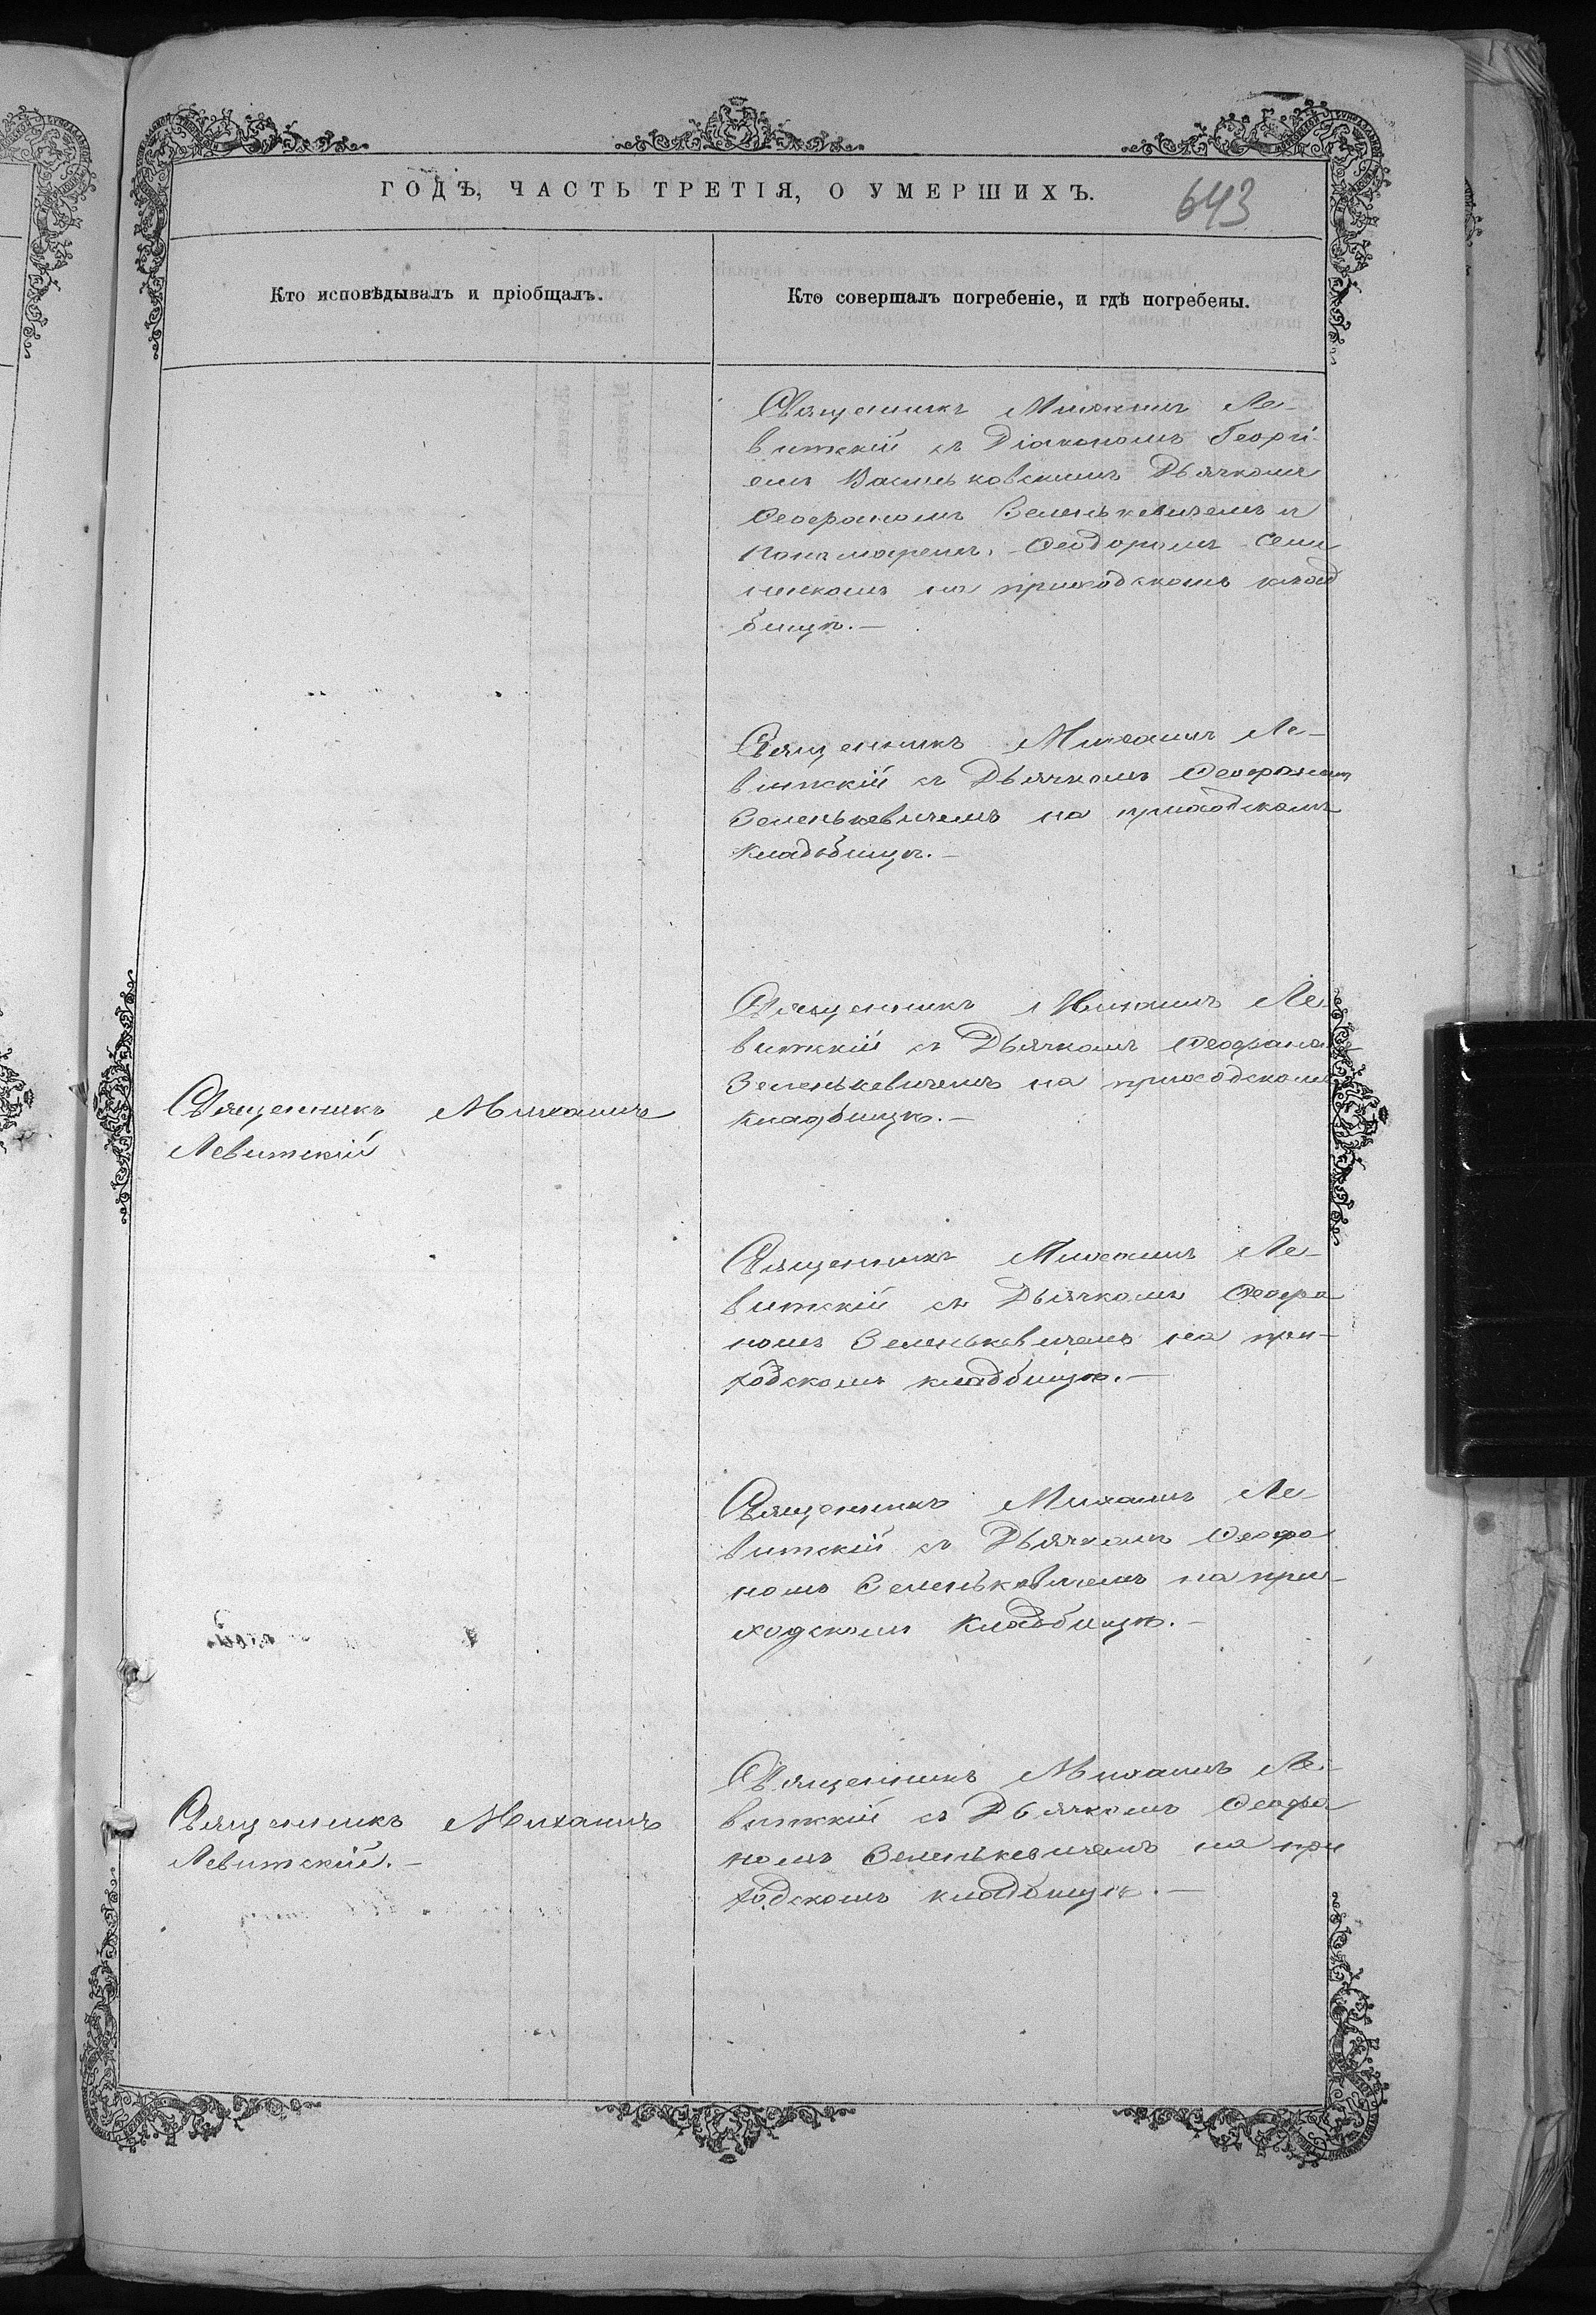 ГОДѢ, ЧАСТЬ ТРЕТІЯ, О УМЕРШИХЪ.
643
Кто исповѣдывалъ и пріобщалъ.
Кто совершалъ погребеніе, и гдѣ погребены.
Священникъ Михаилъ Ле-
витскій съ Діакономъ Георгі
емъ Васильковскимъ Дьячкомъ
Феофаномъ Зеленькевичемъ и
Понамаремъ Феодоромъ
на приходскомъ клад
бищѣ.—
Священникъ Михаилъ Ле-
витскій съ Дьячкомъ Феофаномъ
Зеленькевичемъ на приходскомъ
Кладбищѣ.—
Священникъ Михаилъ
Левитскій
Священникъ Михаилъ Ле-
витскій съ Дьячкомъ Феофаном
Зеленькевичемъ на приходскомъ
Кладбищѣ.—
Священникъ Михаилъ Ле-
витскій съ Дьячкомъ Феофа
номъ Зеленькевичемъ на при-
ходскомъ кладбищѣ.—
Священникъ Михаилъ Ле-
витскій съ Дьячкомъ Феофа
номъ Зеленькевичемъ на при-
ходскомъ Кладбищѣ.—
Священникъ Михаилъ
Левитскій.—
Священникъ Михаилъ Ле-
витскій съ Дьячкомъ Феофа
номъ Зеленькевичемъ на при
ходскомъ кладбищѣ.—